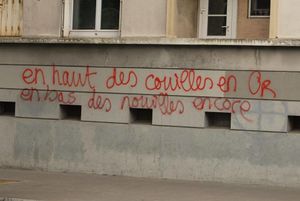 en haut des couilles en OR
en bas des nouilles encore